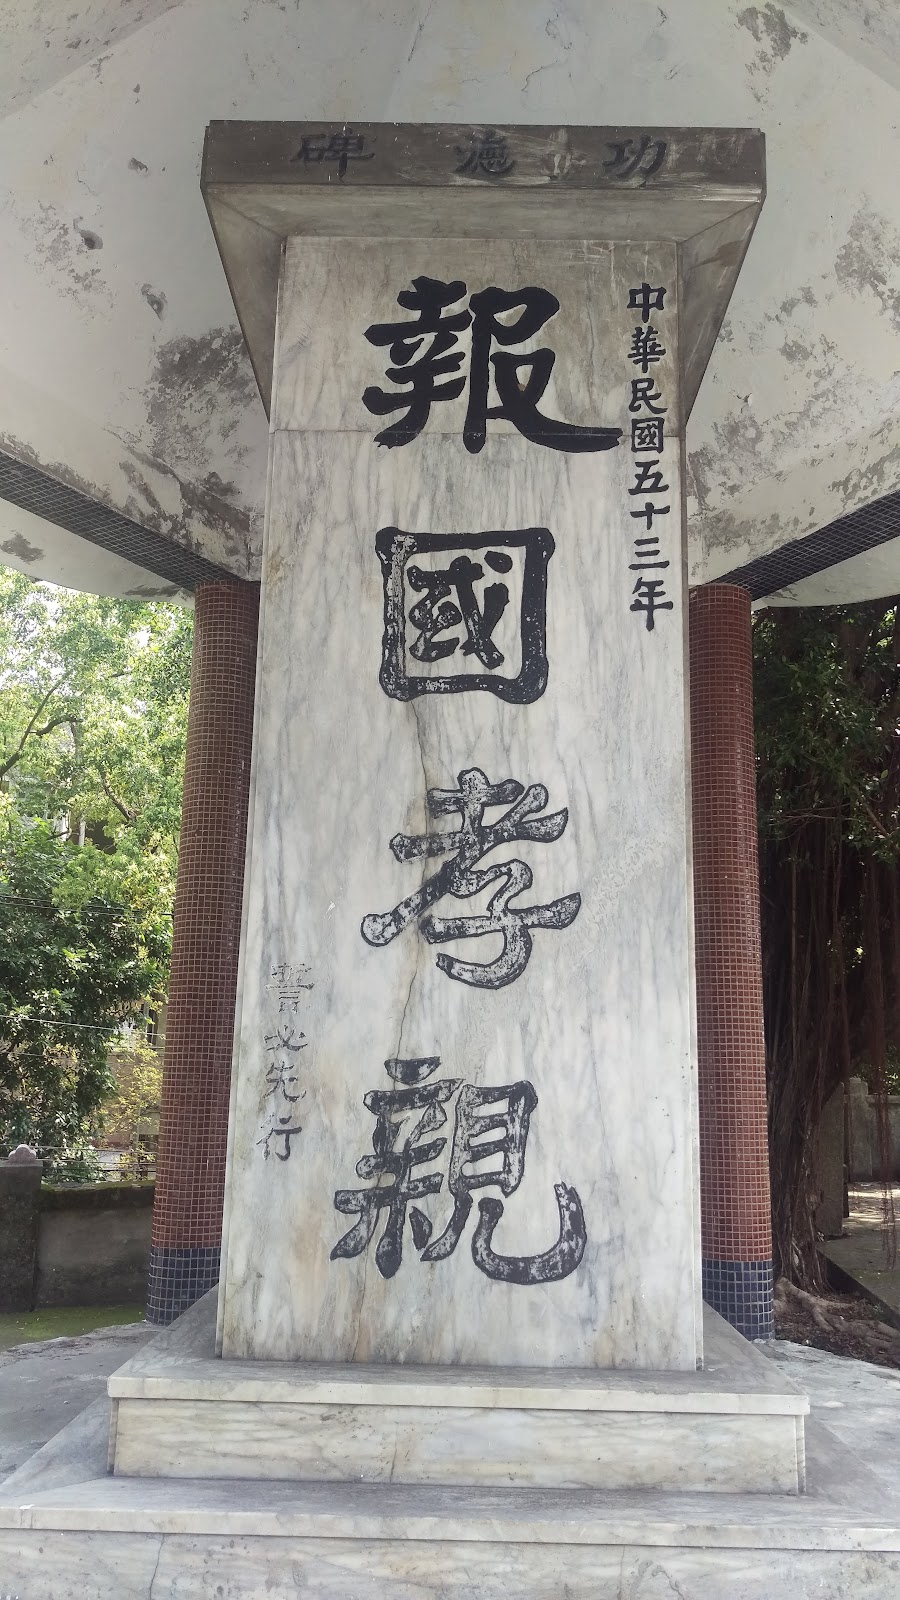 功德碑
中華民國五十三年
報國孝親
誓必先行